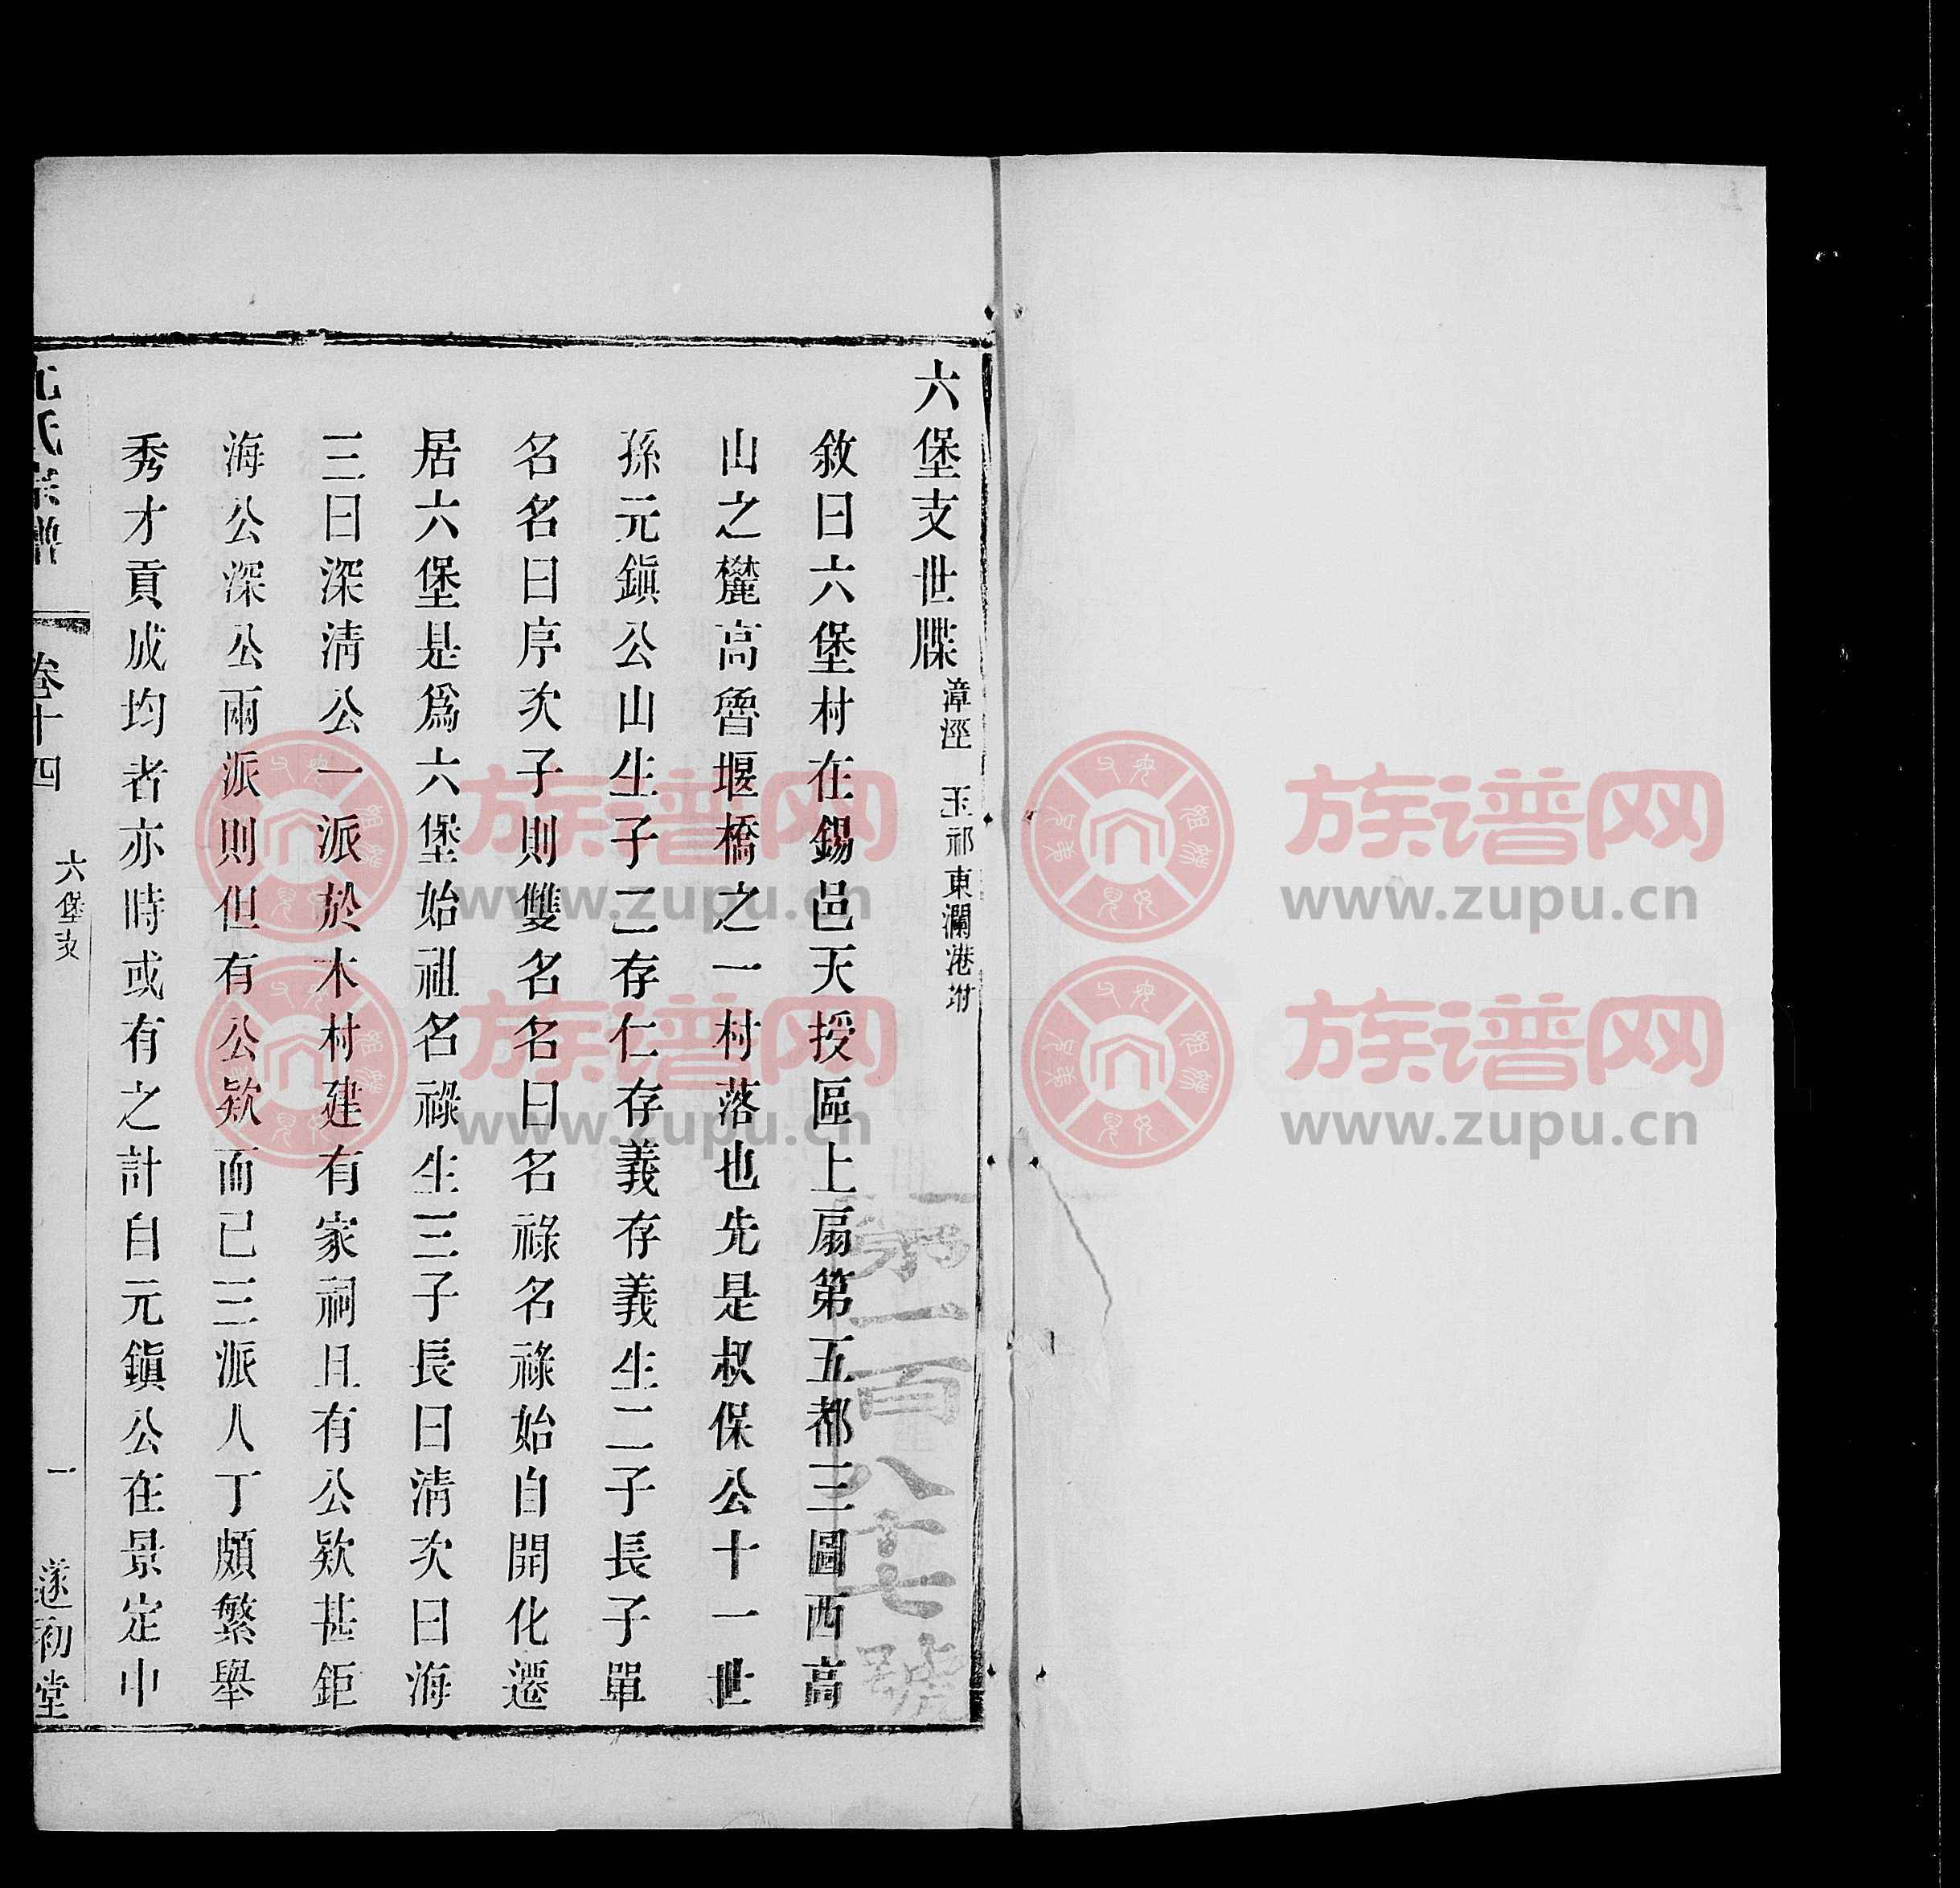 六堡支世牒 漳涇 玉祁東瀾港坿
敘曰六堡村在錫邑天授區上扇第五都三圖西高
山之麓高魯堰橋之一村落也先是叔保公十一世
孫元鎭公山生子二存仁存義存義生二子長子單
名名曰序次子則雙名名曰名祿名祿始自開化遷
居六堡是爲六堡始祖名祿生三子長曰淸次曰海
三曰深淸公一派於木村建有家祠且有公欵甚鉅
海公深公兩派則但有公欵而已三派人丁頗繁舉
秀才貢成均者亦時或有之計自元鎭公在景定中
尤氏宗譜 卷十四 六堡支 一 遂初堂
第一百八十七號
族谱网
www.zupu.cn
族谱网
www.zupu.cn
族谱网
www.zupu.cn
族谱网
www.zupu.cn